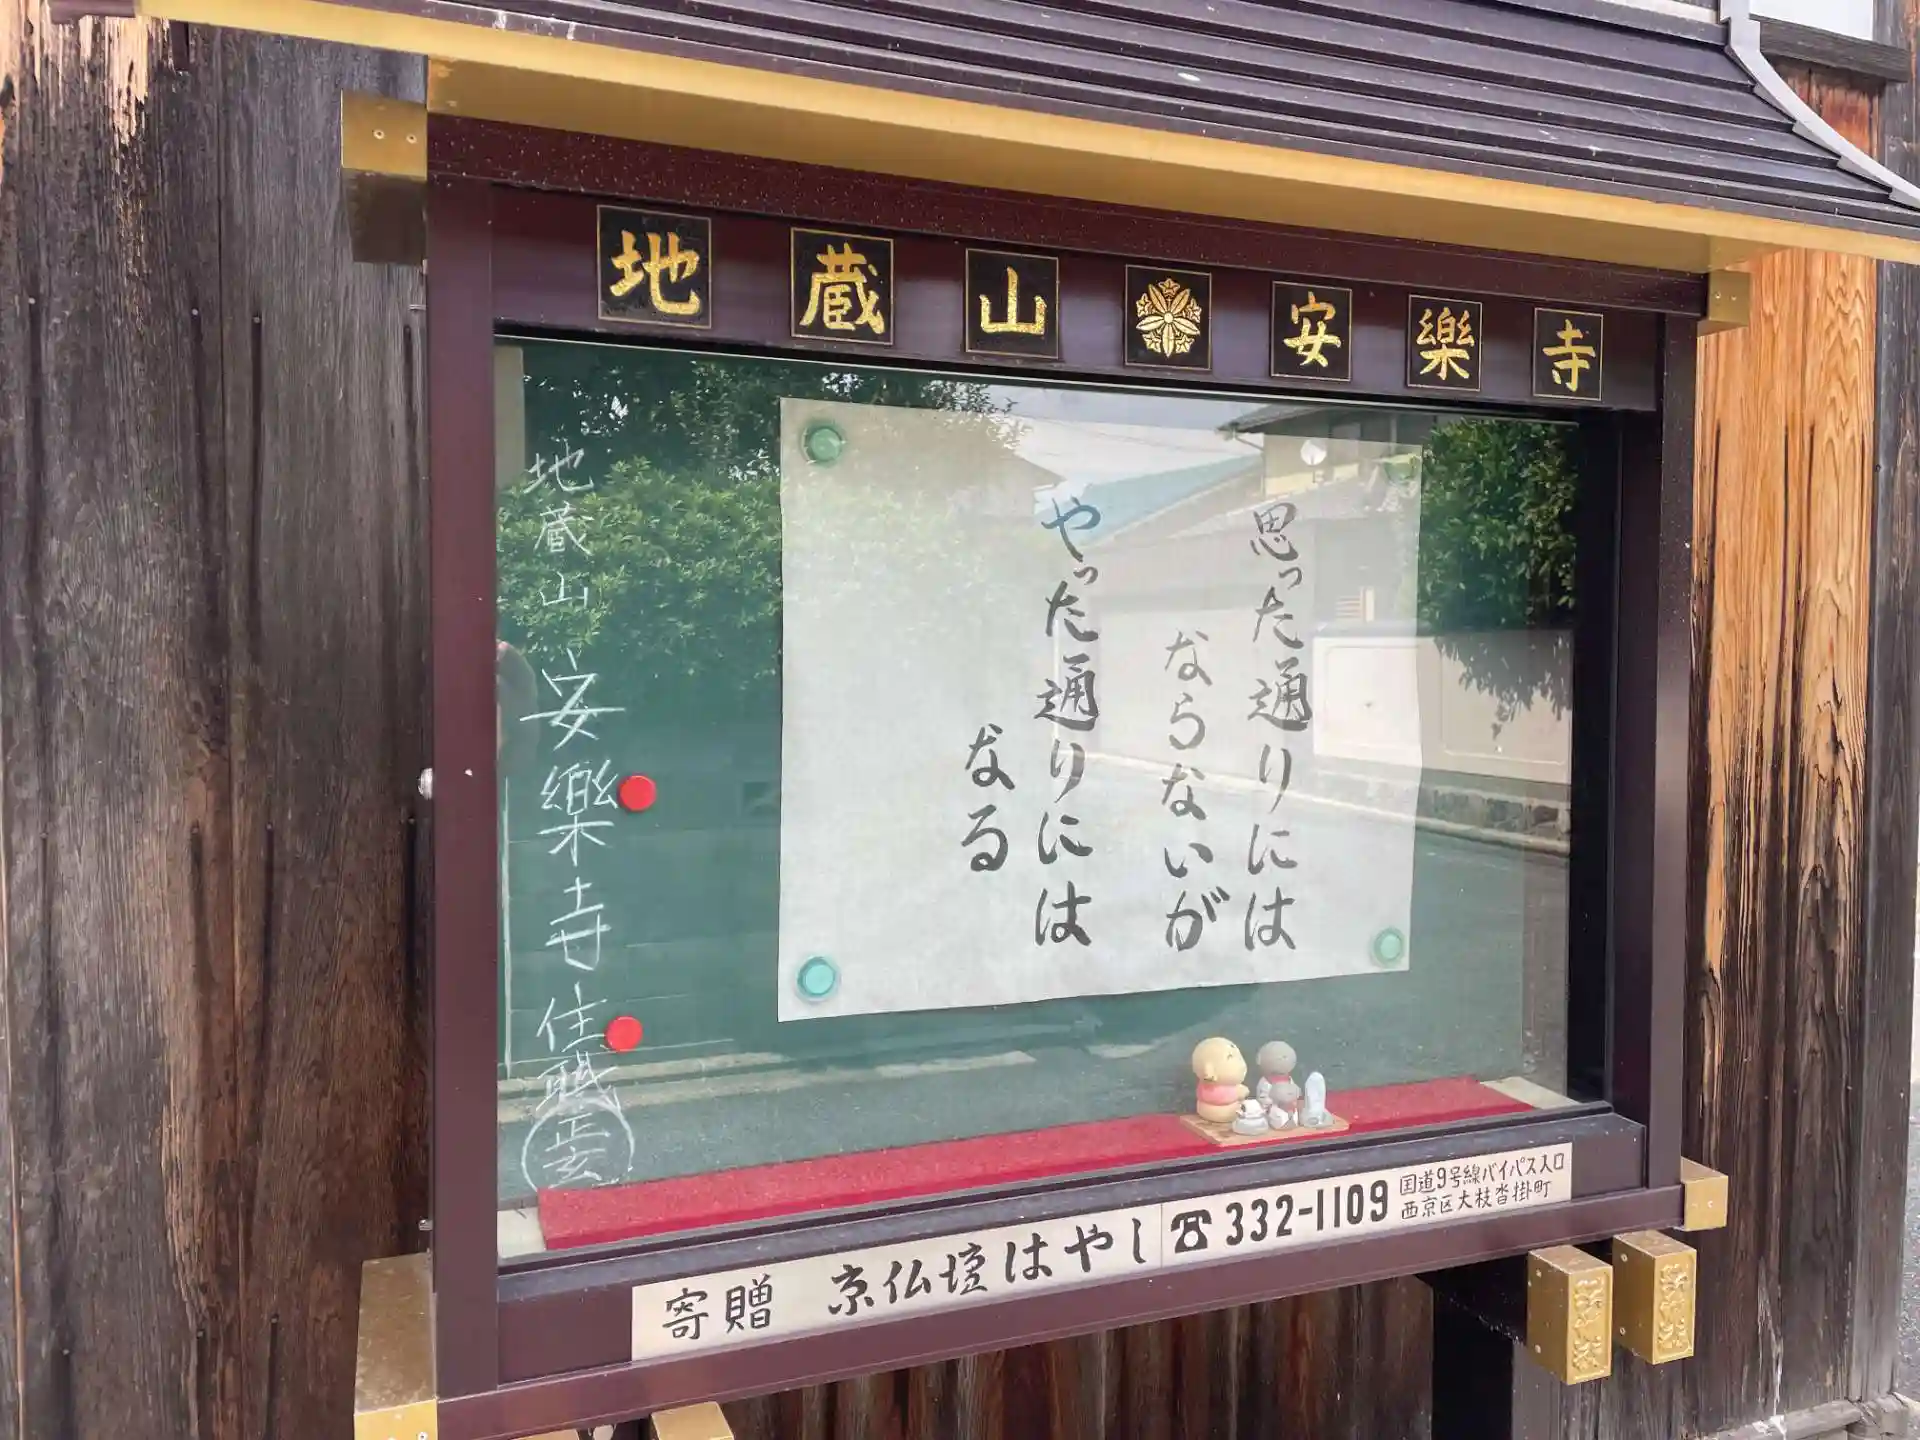 地蔵山 安樂寺
思った通りには
ならないが
やった通りには
なる
地蔵山 安樂寺 住職 正玄
寄贈 京仏壇はやし ☎332-1109
国道9号線バイパス入口
西京区大枝沓掛町